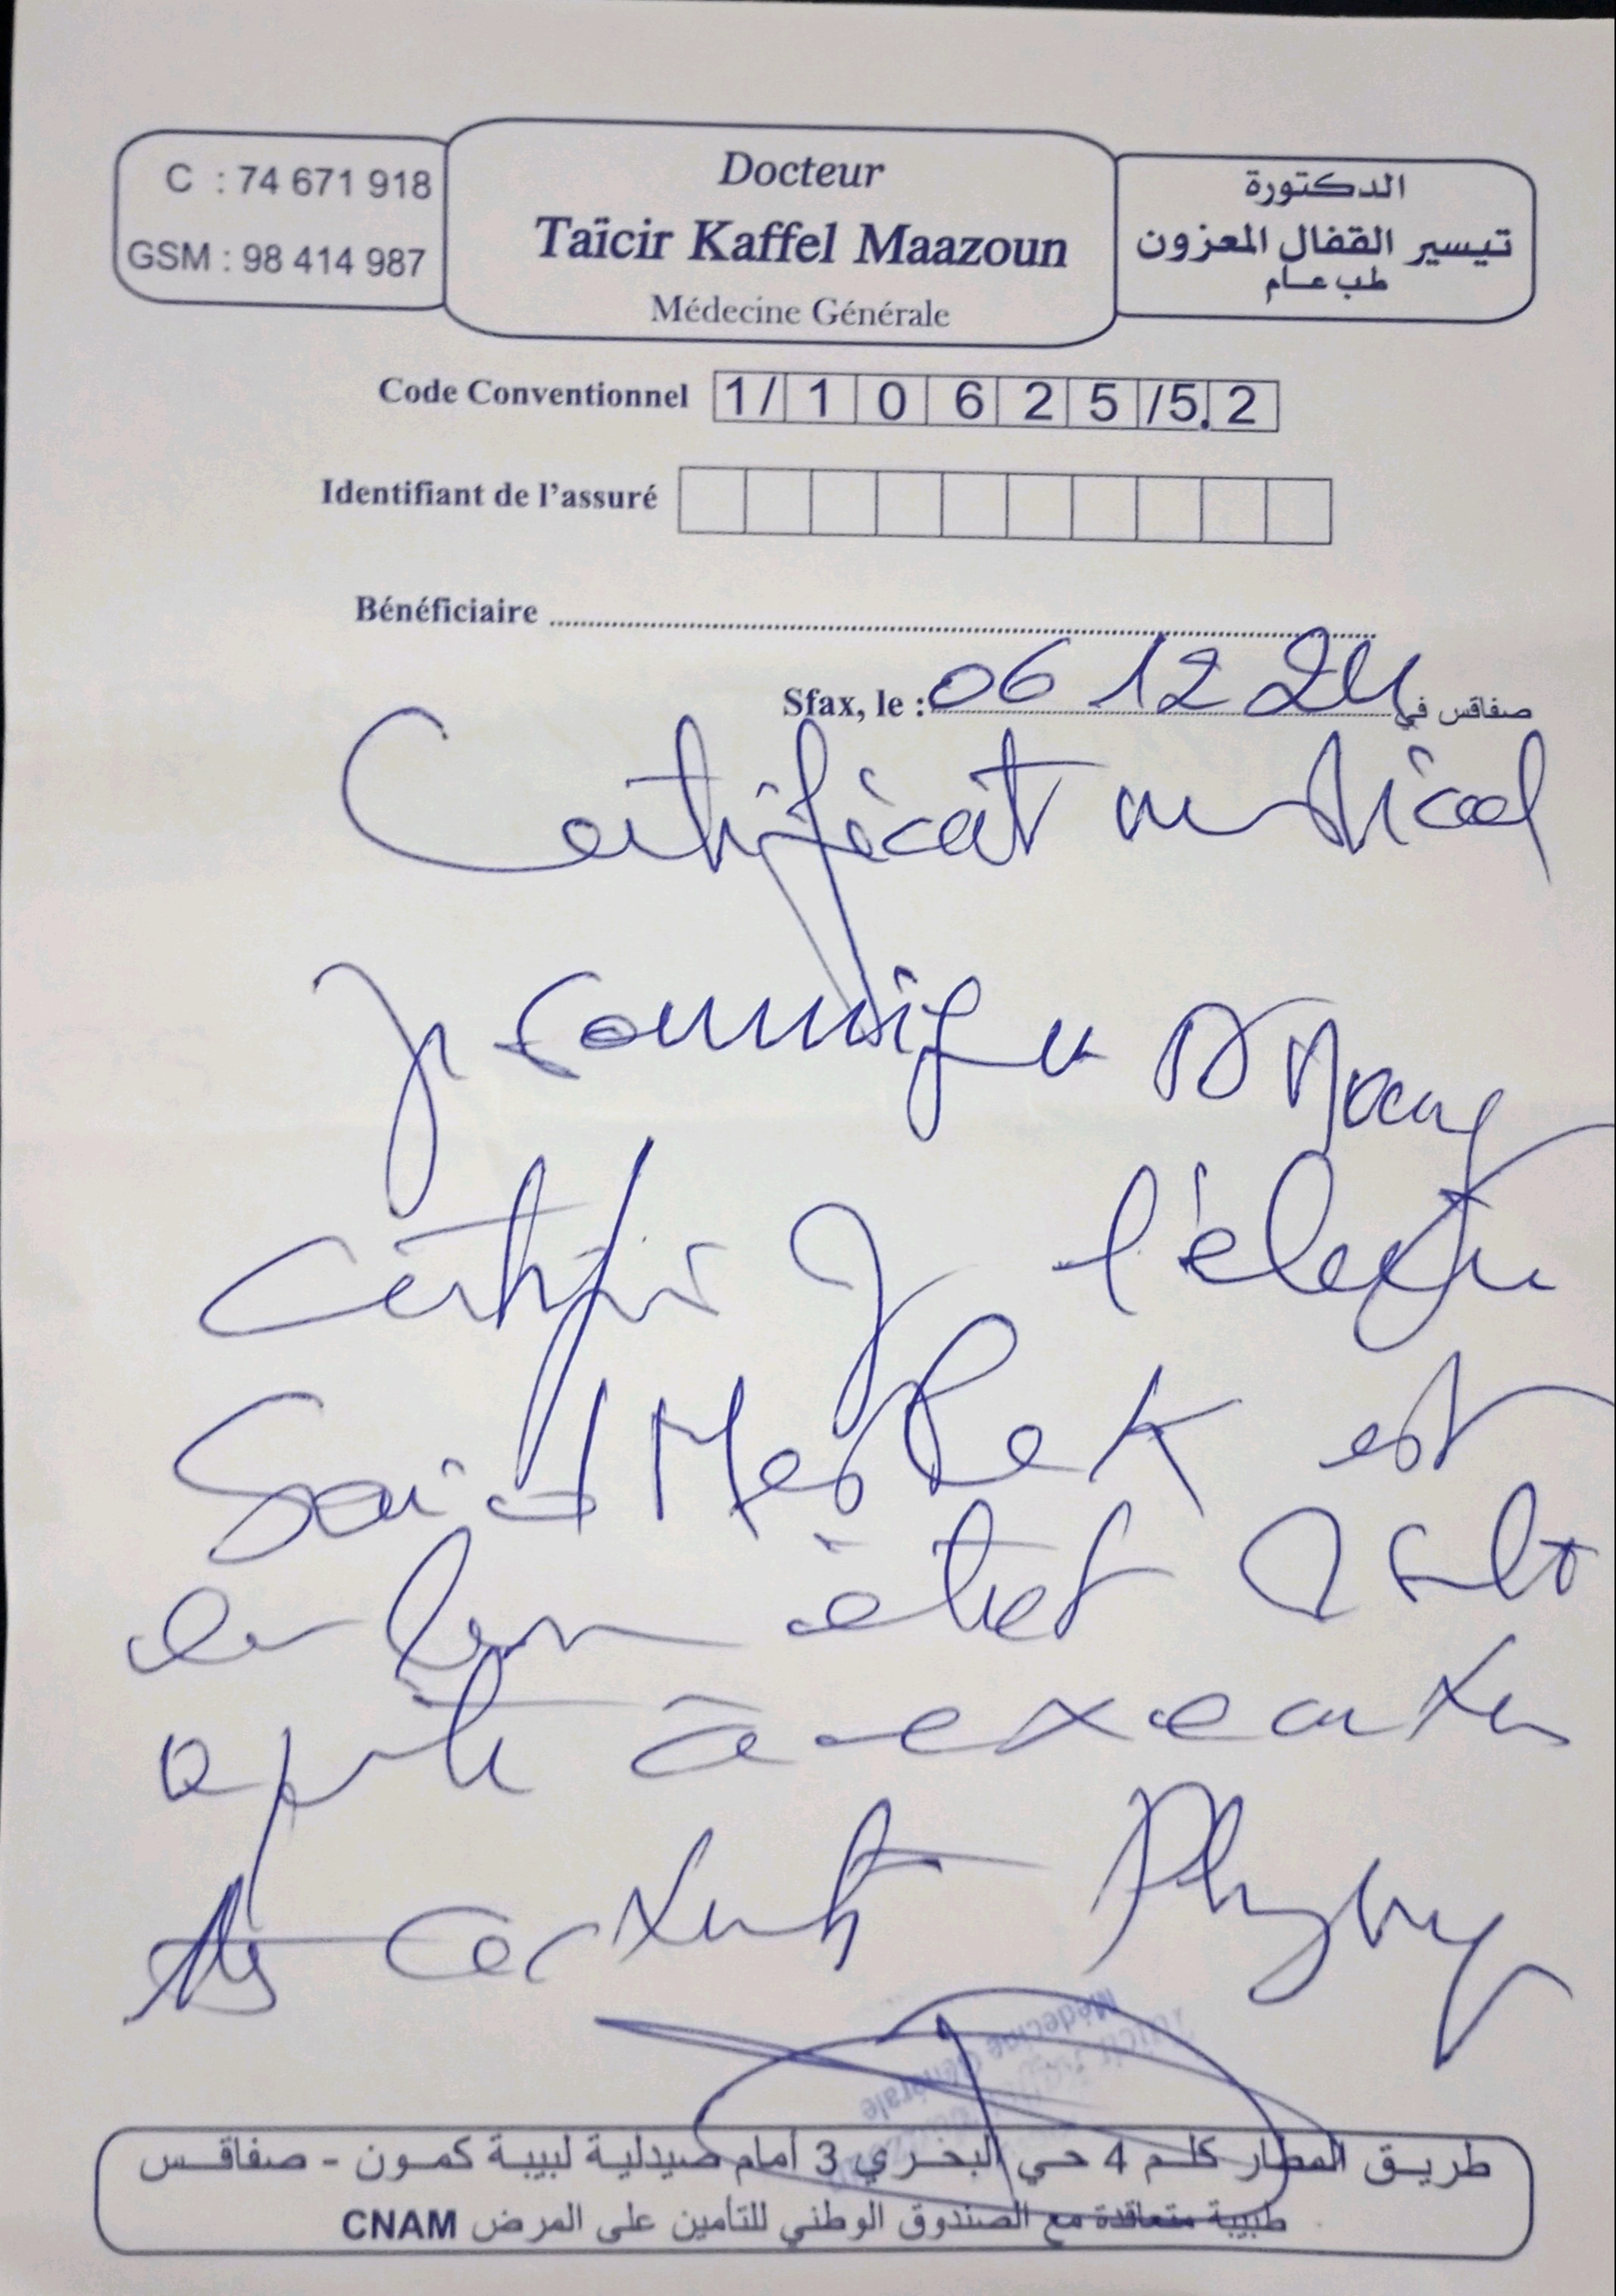 C : 74 671 918
GSM : 98 414 987
Docteur
Taïcir Kaffel Maazoun
Médecine Générale
الدكتورة
تيسير القفال المعزون
طب عام
Code Conventionnel 1/10625/5.2
Identifiant de l'assuré
Bénéficiaire
Sfax, le : 06 12 24 صفاقس في
Certificat medical
Je soussignée Dr
certifie que l'élève
Said Mesbek est
en bon état
apte à executer
les activités Physiq
Médecine Générale
طريق المطار كلم 4 حي البحري 3 أمام صيدلية لبيبة كمون - صفاقس
طبيبة متعاقدة مع الصندوق الوطني للتأمين على المرض CNAM